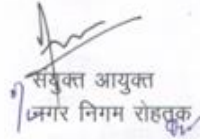 संयुक्त आयुक्त
नगर निगम रोहतक